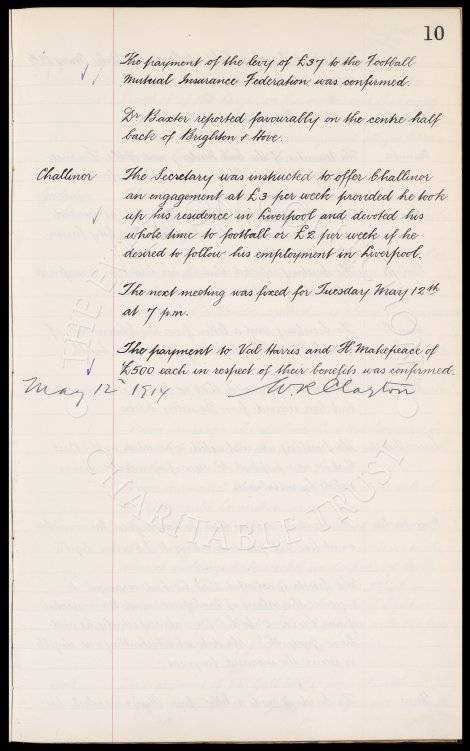 10
The payment of the levy of £37 to the Football
Mutual Insurance Federation was confirmed.
Dr Baxter reported favourally on the centre half
back of Brighton & Hove.
Challinor
The Secretary was instructed to offer Challinor
an engagement at £3 per week provided he took
up his residence in Liverpool and devoted his
whole time to football or £2 per week if he
desired to follow his employment in Liverpool.
The next meeting was fixed for Tuesday May 12th
at 7 p.m.
The payment to Val Harris and H. Makepeace of
£500 each in respect of their benefits was confirmed.
May 12 1914 W R Clayton
CHARITABLE TRUST